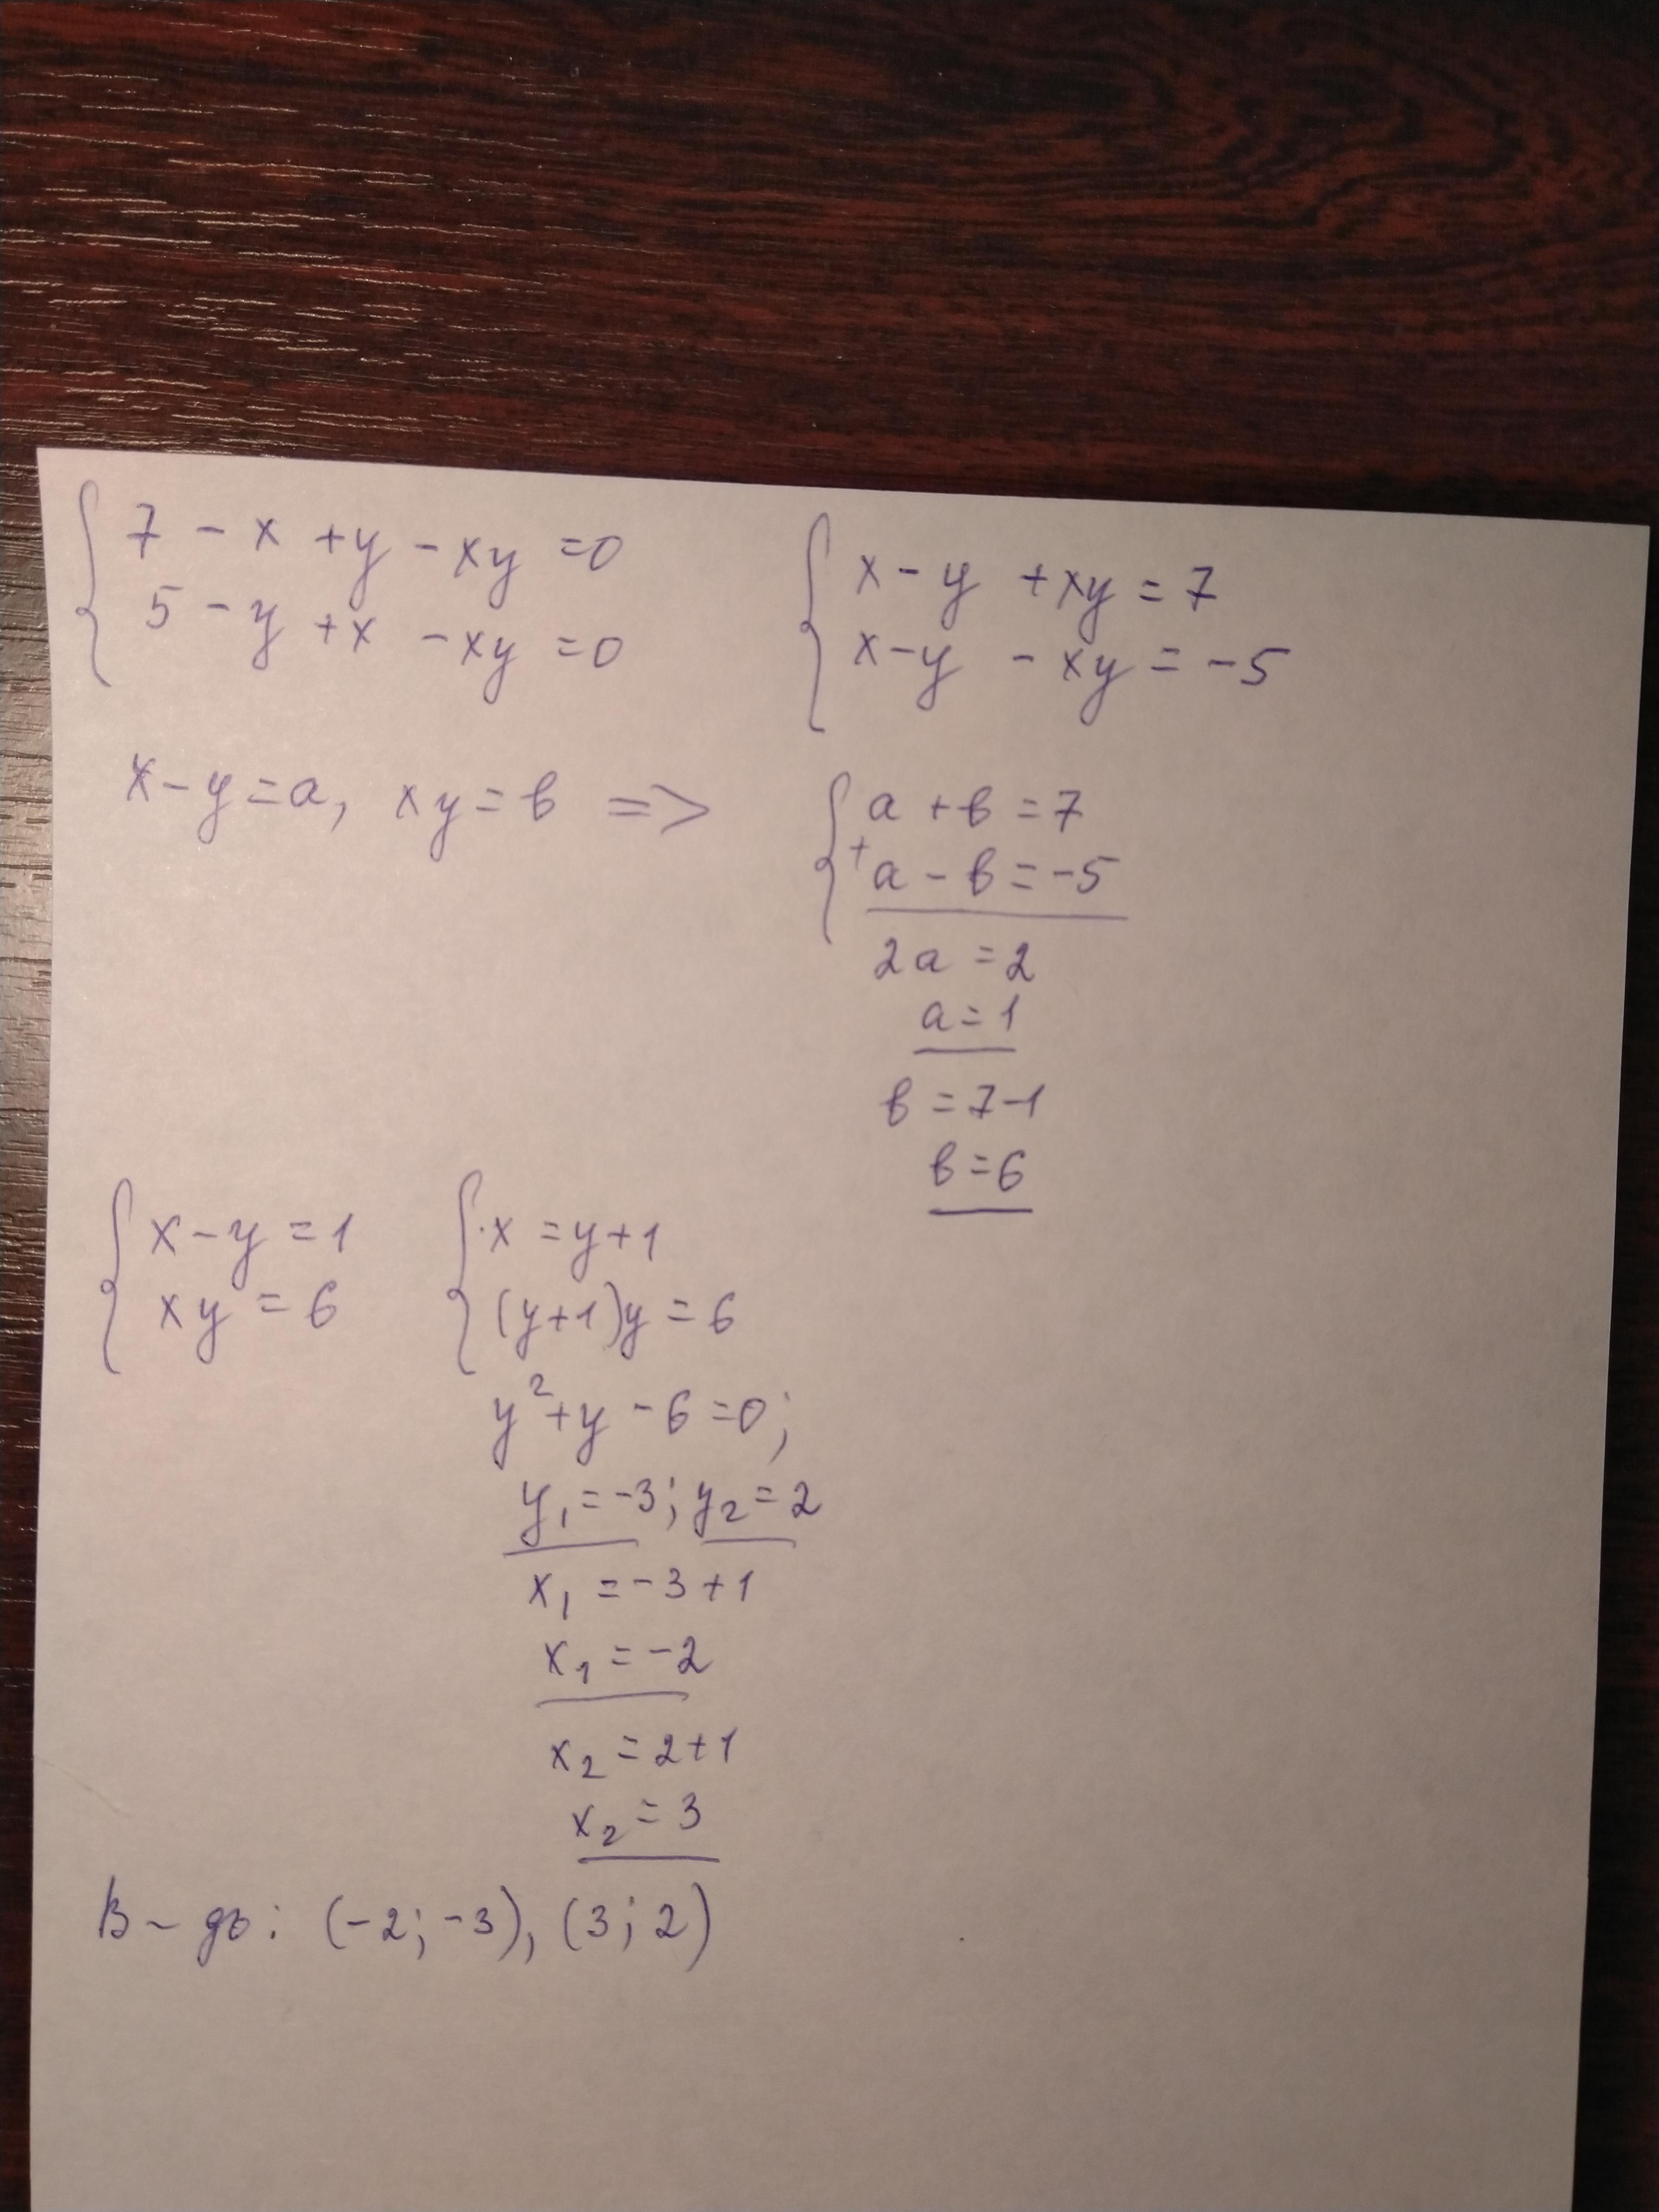 7 - x + y - xy = 0
5 - y + x - xy = 0
x - y + xy = 7
x - y - xy = -5
x - y = a, xy = b =>
a + b = 7
+ a - b = -5
2a = 2
a = 1
b = 7-1
b = 6
x - y = 1
xy = 6
x = y + 1
(y+1)y = 6
y² + y - 6 = 0;
y₁ = -3; y₂ = 2
x₁ = -3 + 1
x₁ = -2
x₂ = 2 + 1
x₂ = 3
В-дь: (-2; -3), (3; 2)